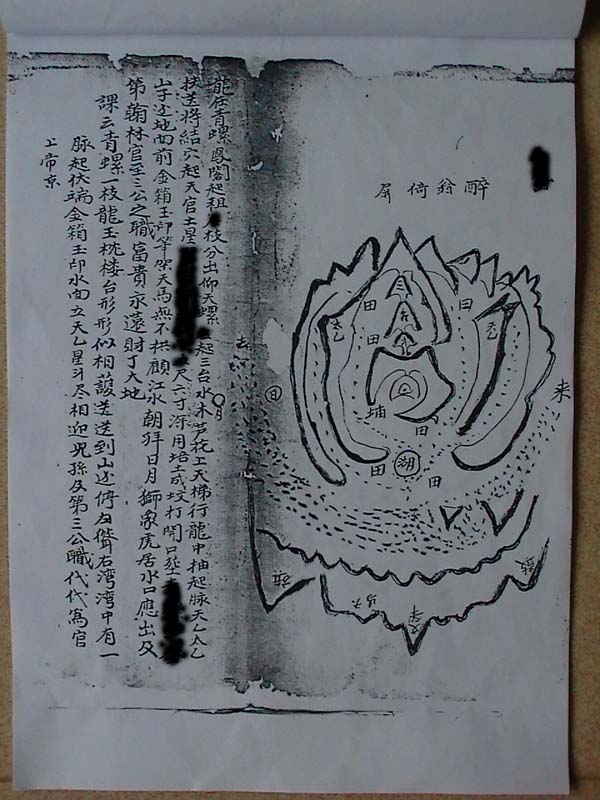 醉翁倚屏
田
田
太乙
天乙
来
去
日
月
埔
田
田
湖
田
龍在青螺鳳閣起祖枝分出仰天螺起三台水木芦花上天梯行龍中抽起脉天乙太乙
扶送將結穴起天官土星尺六寸深用培土成坟打開口塟
山字近地面前金箱玉印筆架天馬無不拱顧江水朝拜日月獅象虎居水口應出及
第翰林官至三公之職富貴永遠財丁大地
課云青螺一枝龍玉枕楼台形形似相護送送到山边左聳右湾湾中有一
脉起伏端金箱玉印水面立天乙星斗尽相迎兒孫及第三公職代代為官
上帝京